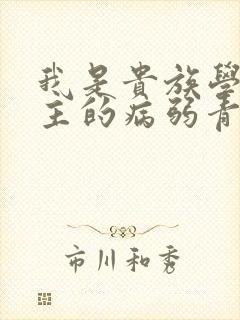 我是貴族學
主的病弱青
市川和秀